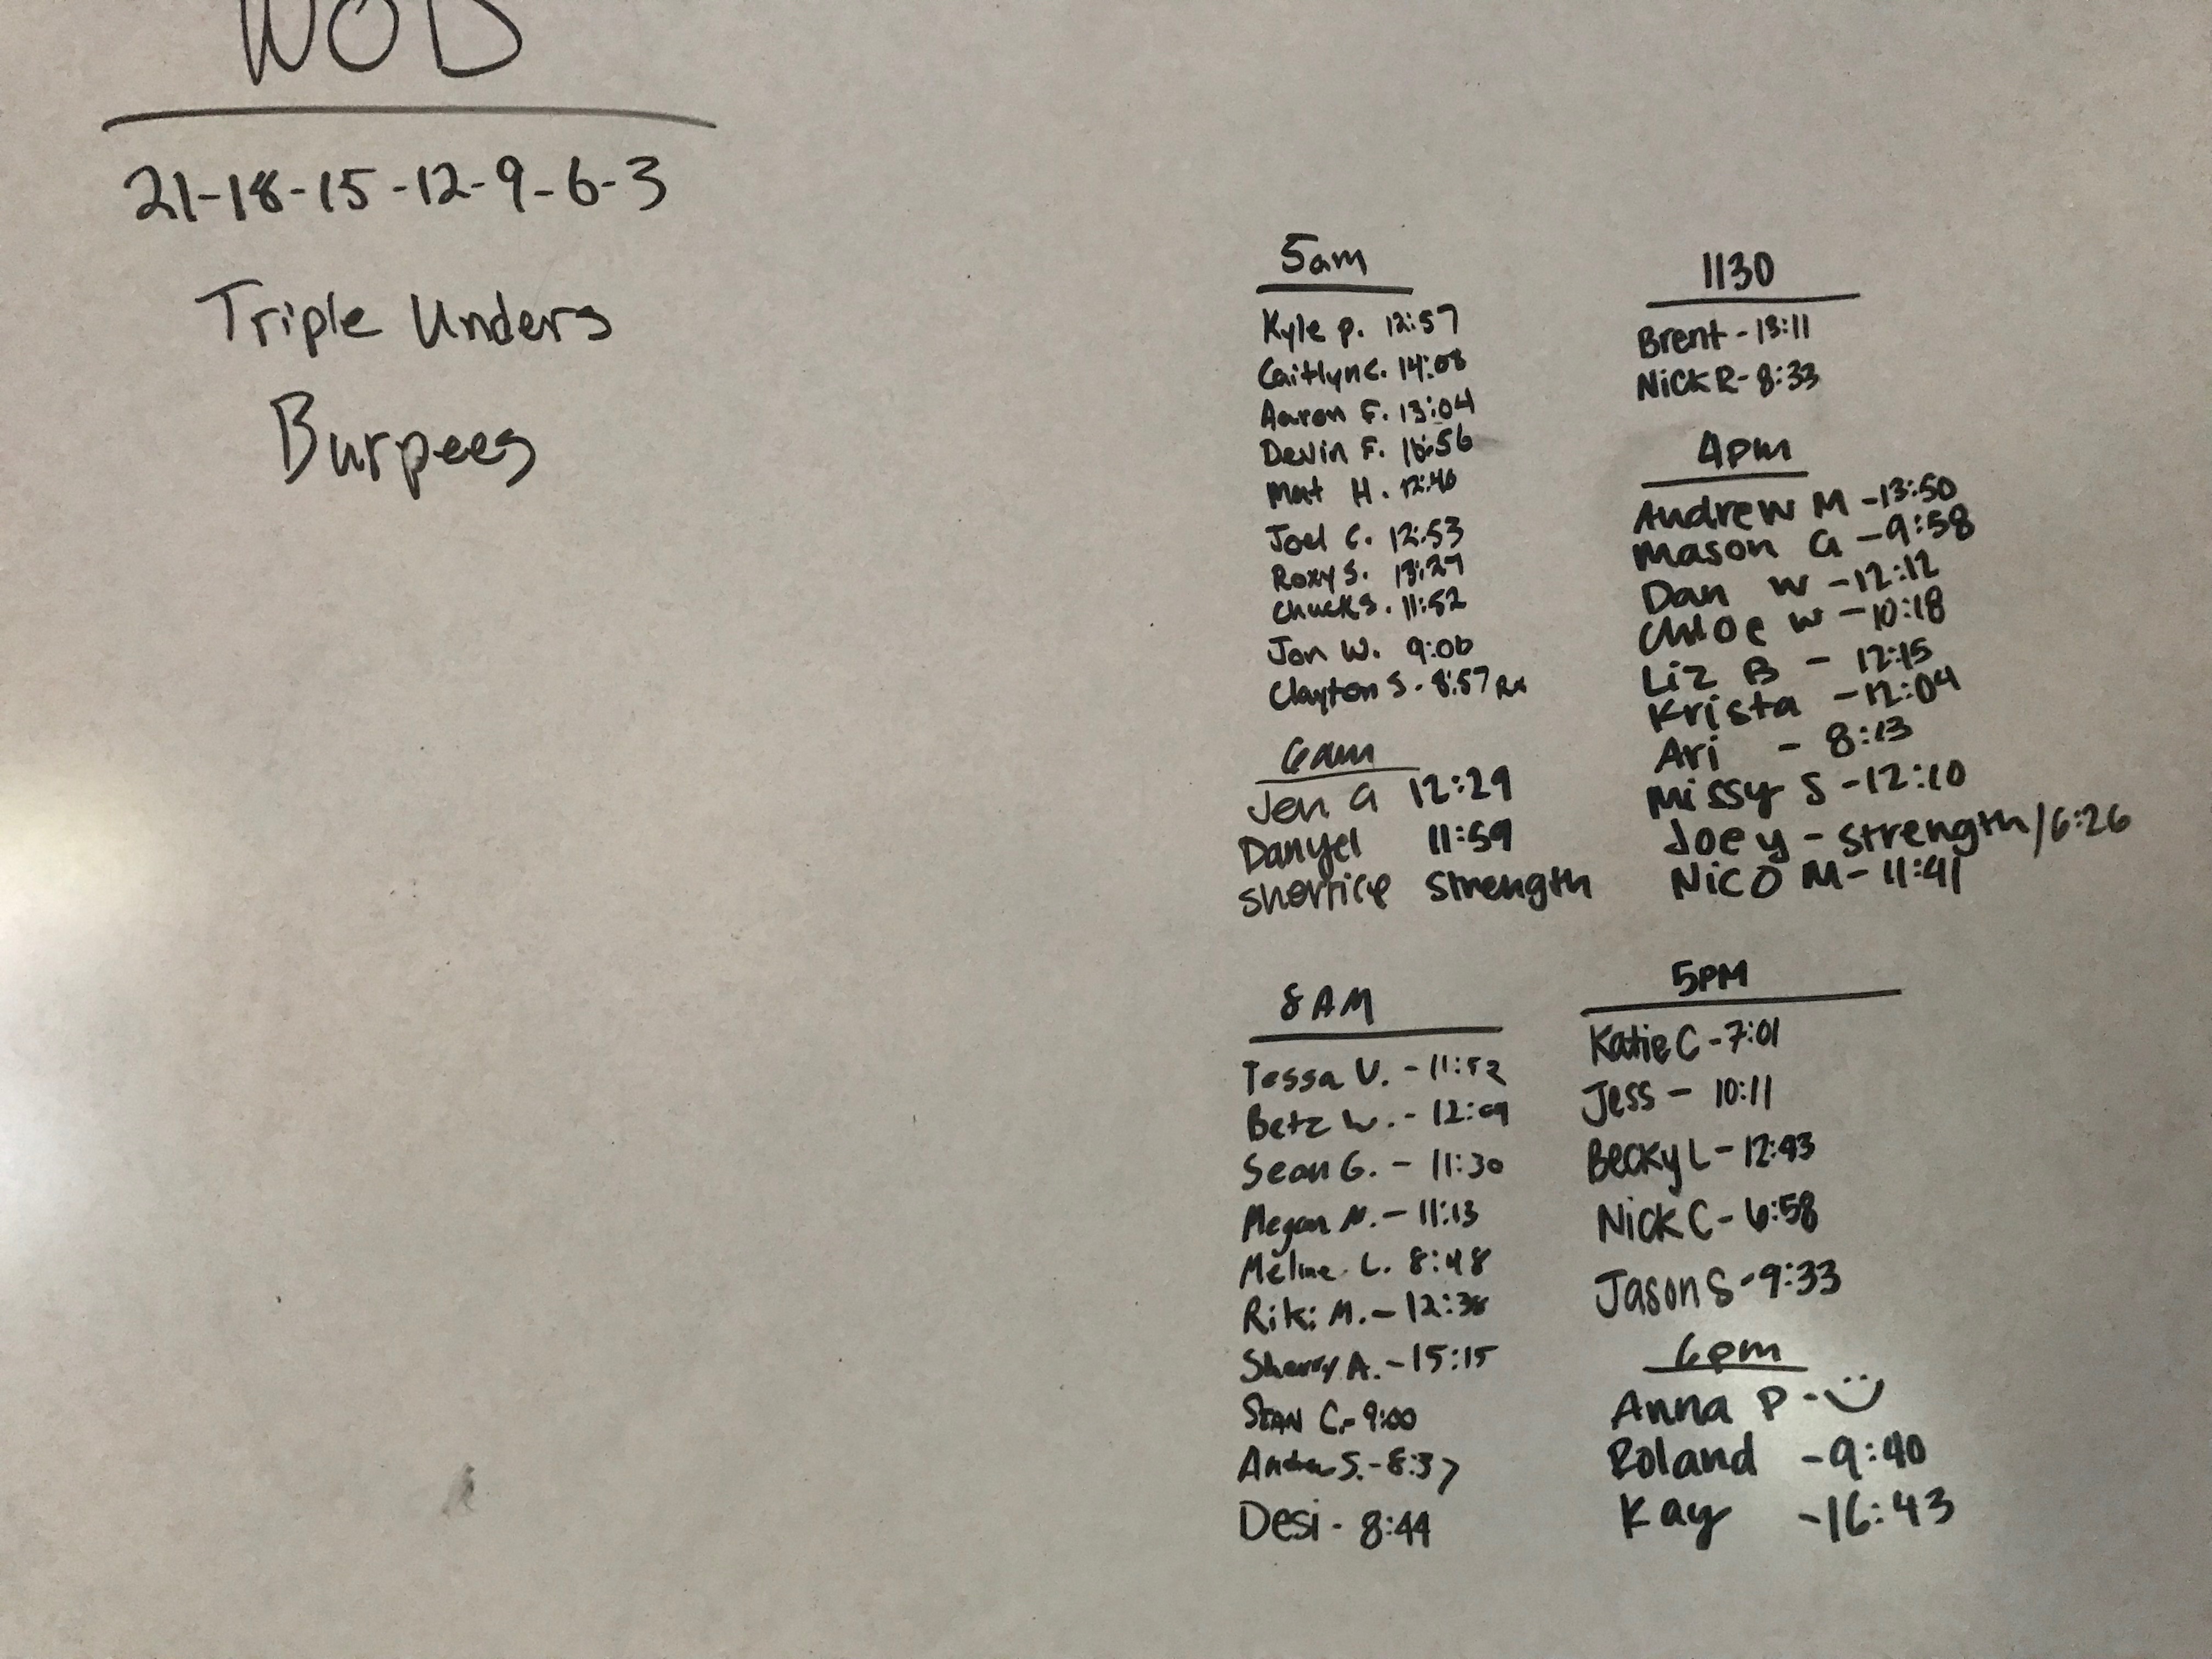 WOD
21-18-15-12-9-6-3
Triple Unders
Burpees
5am
Kyle P. 12:57
Caitlyn C. 14:08
Aaron F. 13:04
Devin F.
Mat H. 12:46
Joel C. 12:53
Roxy S.
Chuck S. 11:52
Jon W. 9:00
Clayton S. - 8:57 Rx
6am
Jen G 12:29
Danyel 11:59
Shortice Strength
8 AM
Tessa V. - 11:52
Betz W. - 12:09
Sean G. - 11:30
Megan N. - 11:13
L. 8:48
Riki M. - 12:38
Sherry A. - 15:15
STAN C. - 9:00
S. - 8:37
Desi - 8:44
1130
Brent - 13:11
NICK R - 8:33
4pm
Andrew M - 13:50
Mason G - 9:58
Dan W - 12:12
Chloe W - 10:18
Liz B - 12:15
Krista - 12:04
Ari - 8:13
Missy S - 12:10
Joey - Strength/6:26
Nico M - 11:41
5PM
Katie C - 7:01
Jess - 10:11
Becky L - 12:43
Nick C - 6:58
Jason S - 9:33
6pm
Anna P -
Roland - 9:40
Kay - 16:43